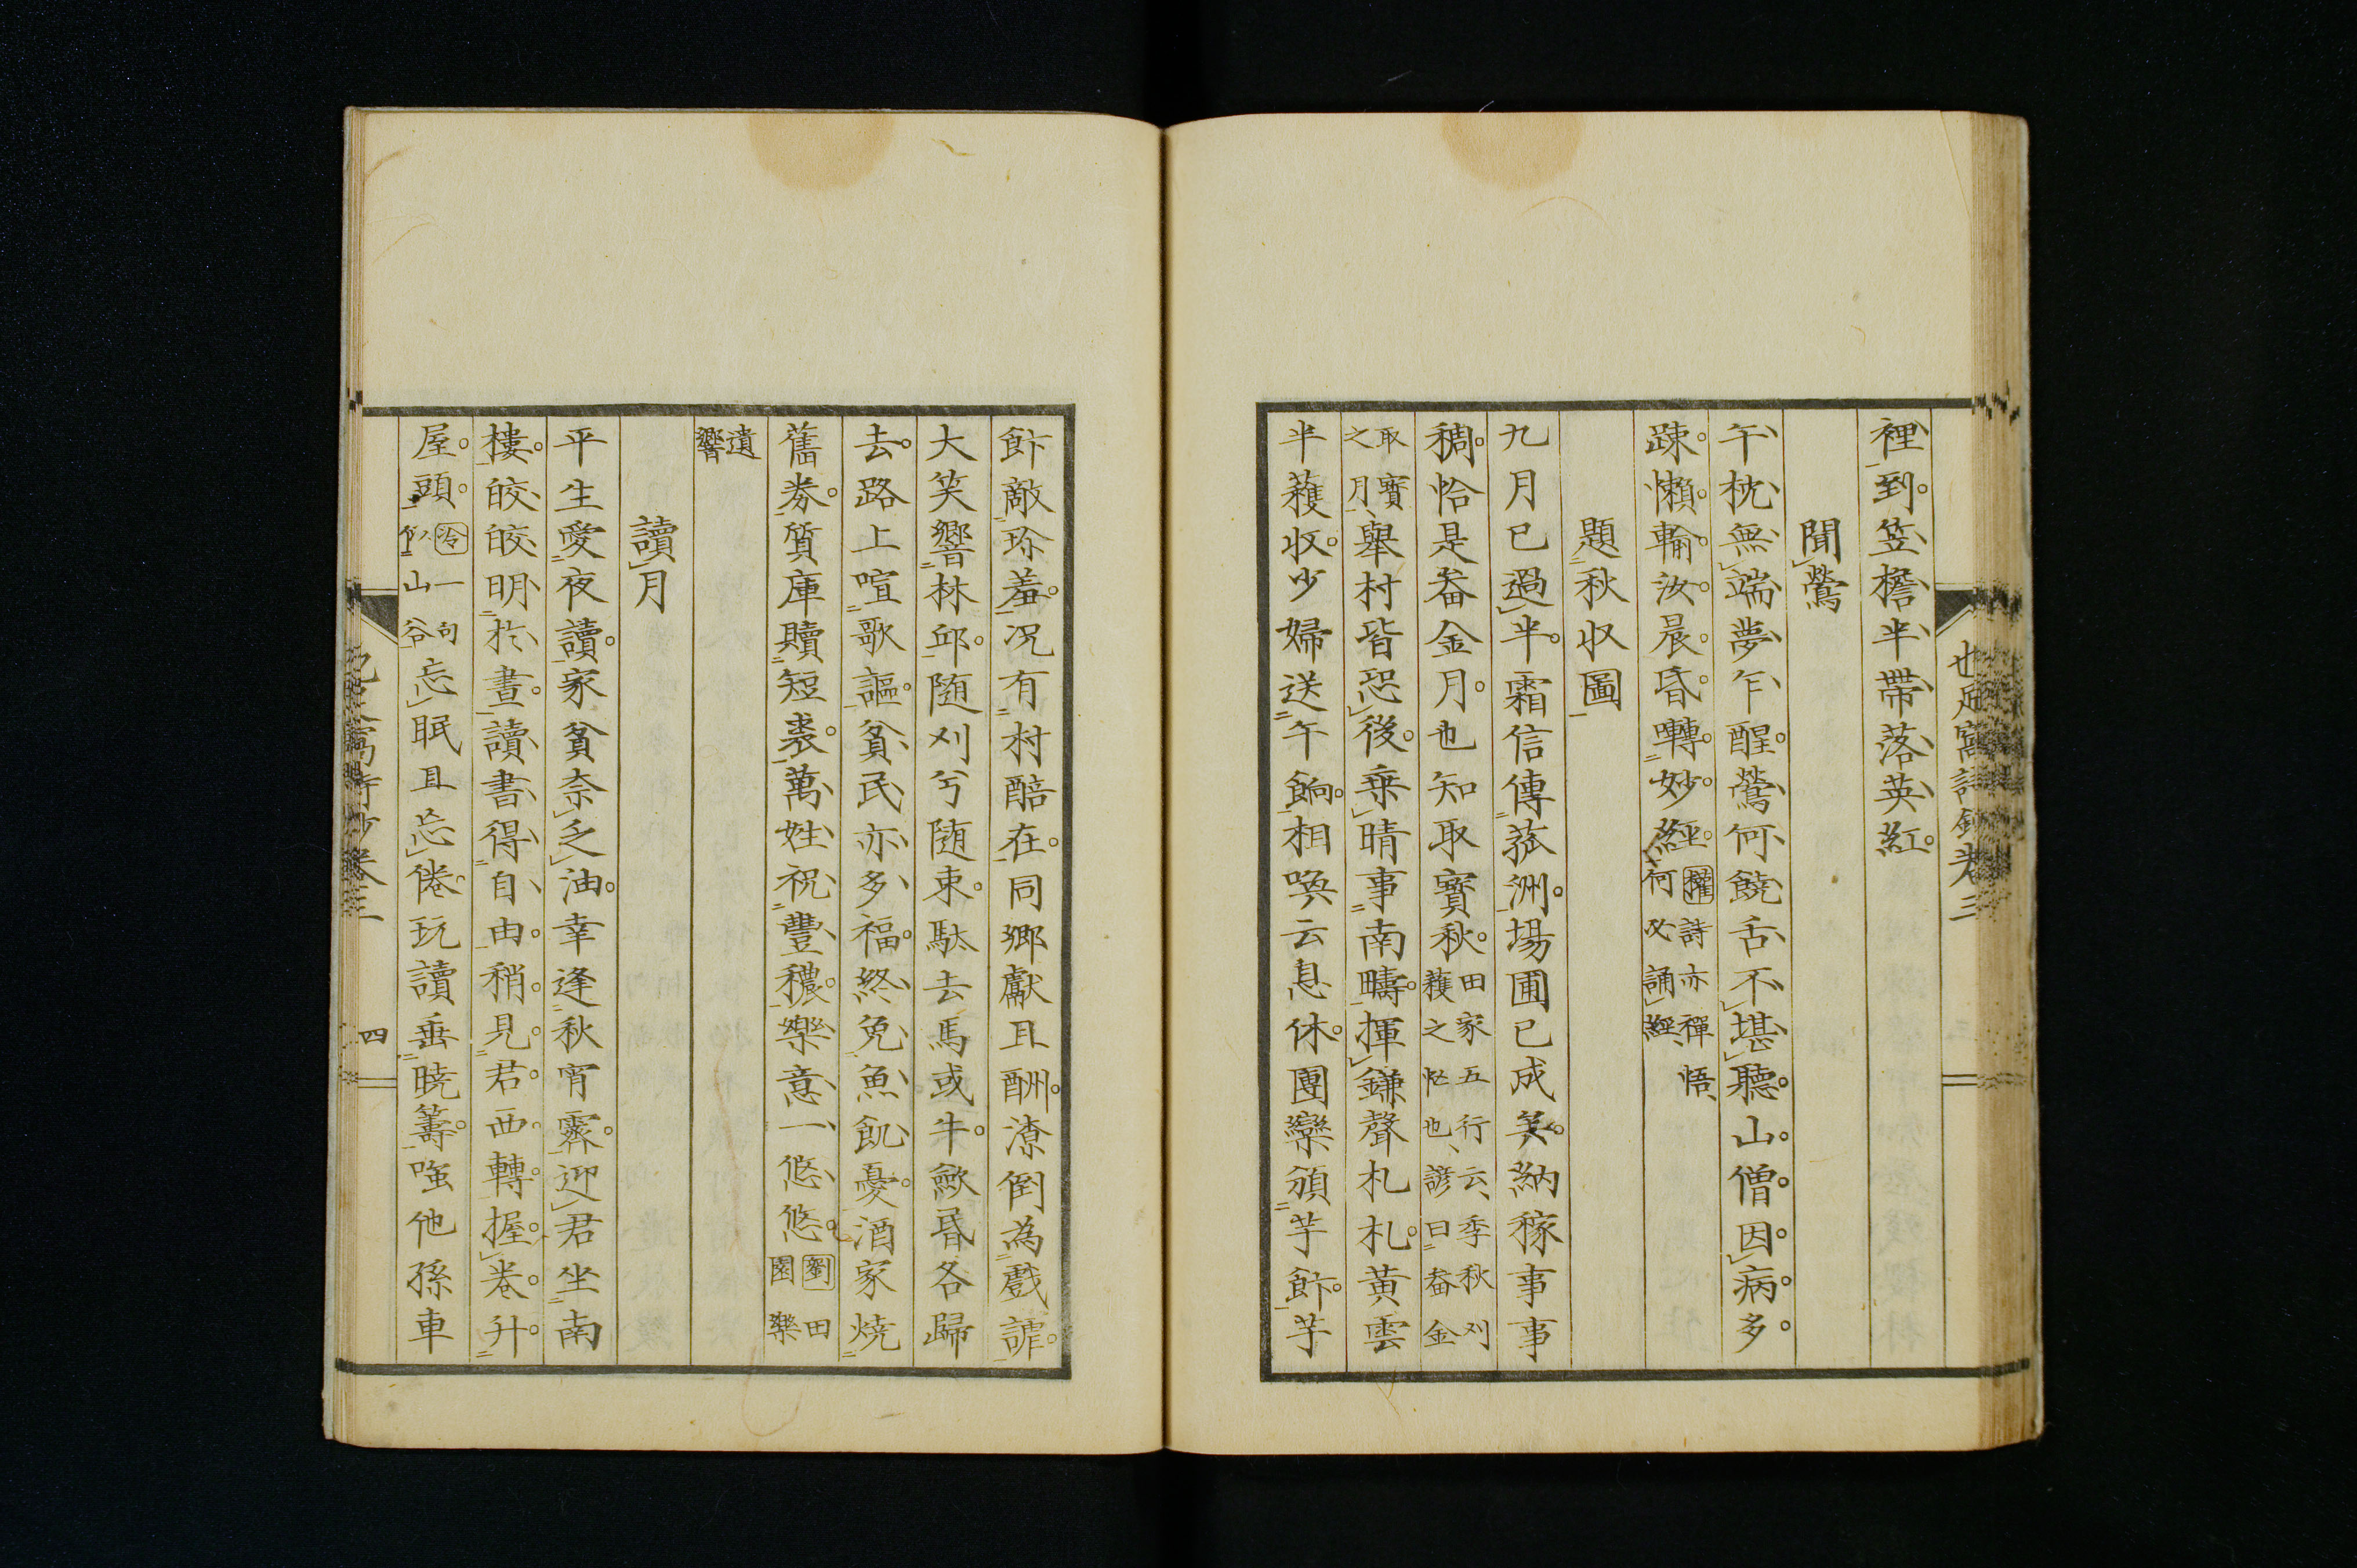 裡到笠檐半帶落英紅
聞鶯
午枕無端夢乍醒鶯何饒舌不堪聽山僧因病多
踈懶輸汝晨昏囀妙經
詩亦禪悟
何必誦經
題秋収圖
九月已過半霜信傳菰洲場圃已成美納稼事事
稠恰是畚金月也知取寳秋
田家五行云季秋刈
穫之忙也諺曰畚金
取寳
之月
舉村皆恐後乗晴事南疇揮鎌聲札札黄雲
半穫収少婦送午餉相喚云息休團欒頒芋飰芋
飰敵珎羞况有村醅在同郷獻且酬潦倒為戲謔
大笑響林邱随刈兮随束駄去馬或牛歛昏各歸
去路上喧歌謳貧民亦多福終免魚飢憂酒家燒
舊券質庫贖短裘萬姓祝豐穠樂意一悠悠
劉田
園樂
遺
響
讀月
平生愛夜讀家貧奈乏油幸逢秋宵霽迎君坐南
樓皎皎明於晝讀書得自由稍見君西轉握卷升
屋頭
冷一句
似山谷
忘眠且忘倦玩讀垂曉籌嗤他孫車
也足窩詩鈔卷三
四